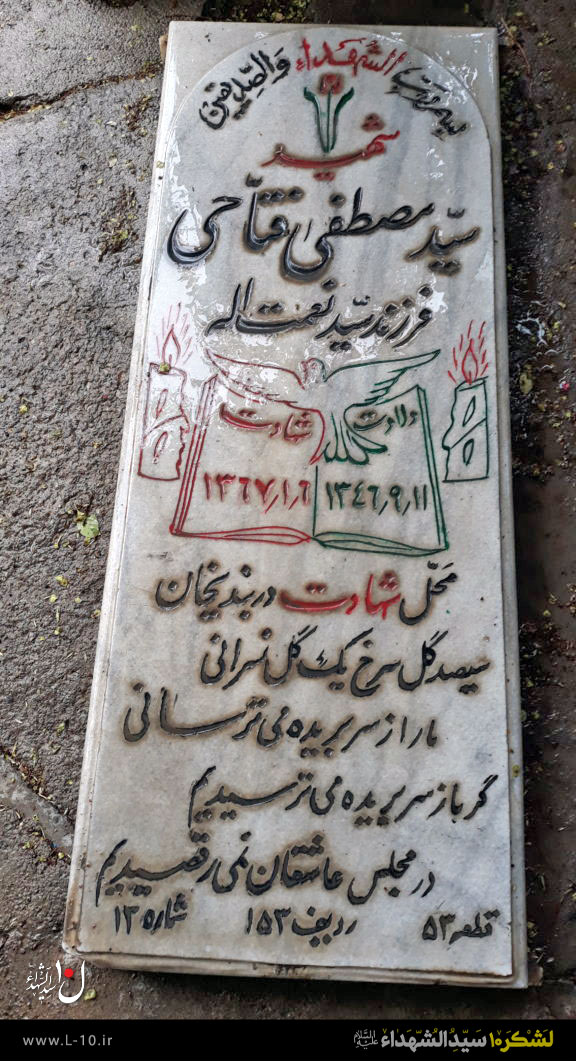 بسم رب الشهداء والصدیقین
شهید
سید مصطفی فتاحی
فرزند سید نعمت اله
ولادت شهادت
۱۳۴۶٫۹٫۱۱ ۱۳۶۷٫۱٫۶
محل شهادت دربندیخان
سیصد گل سرخ یک گل نسرانی
ما را ز سر بریده می ترسانی
گر ما ز سر بریده می ترسیدیم
در مجلس عاشقان نمی رقصیدیم
قطعه ۵۳ ردیف ۱۵۳ شماره ۱۳
لشکر۱۰ سیدالشهداء علیه‌السلام
www.L-10.ir